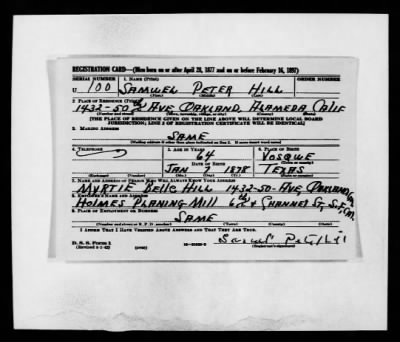 REGISTRATION CARD—(Men born on or after April 28, 1877 and on or before February 16, 1897)
SERIAL NUMBER 1. NAME (Print) ORDER NUMBER
U 100 SAMUEL PETER HILL
(First) (Middle) (Last)
2. PLACE OF RESIDENCE (Print)
1432-50 AVE OAKLAND, ALAMEDA CALIF
(Number and street) (Town, township, village, or city) (County) (State)
[THE PLACE OF RESIDENCE GIVEN ON THE LINE ABOVE WILL DETERMINE LOCAL BOARD
JURISDICTION; LINE 2 OF REGISTRATION CERTIFICATE WILL BE IDENTICAL]
3. MAILING ADDRESS
SAME
[Mailing address if other than place indicated on line 2. If same insert word same]
4. TELEPHONE 5. AGE IN YEARS 6. PLACE OF BIRTH
64 VOSQUE
DATE OF BIRTH (Town or county)
JAN 7 1878 TEXAS
(Exchange) (Number) (Mo.) (Day) (Yr.) (State or country)
7. NAME AND ADDRESS OF PERSON WHO WILL ALWAYS KNOW YOUR ADDRESS
MYRTIE BELLE HILL 1432-50-AVE OAKLAND
8. EMPLOYER'S NAME AND ADDRESS
HOLMES PLANING MILL 6th & CHANNEL ST, S.F.
9. PLACE OF EMPLOYMENT OR BUSINESS
SAME
(Number and street or R. F. D. number) (Town) (County) (State)
I AFFIRM THAT I HAVE VERIFIED ABOVE ANSWERS AND THAT THEY ARE TRUE.
D. S. S. Form 1
(Revised 4-1-42) (over) Samuel Peter Hill
(Registrant's signature)